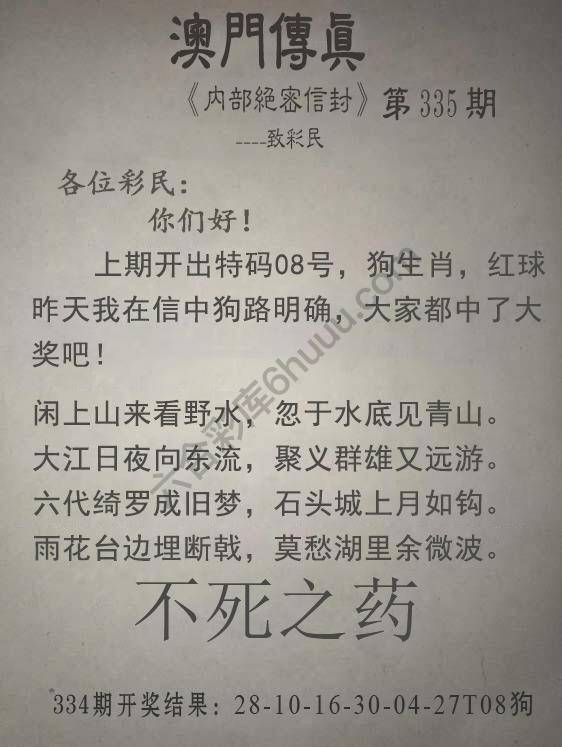 澳門傳眞
《内部絕密信封》第335期
----致彩民
各位彩民：
你们好！
上期开出特码08号，狗生肖，红球
昨天我在信中狗路明确，大家都中了大
奖吧！
闲上山来看野水，忽于水底见青山。
大江日夜向东流，聚义群雄又远游。
六代绮罗成旧梦，石头城上月如钩。
雨花台边埋断戟，莫愁湖里余微波。
不死之药
334期开奖结果：28-10-16-30-04-27T08狗
六合彩库6huuu.com